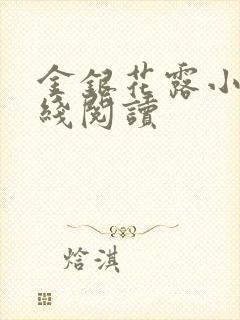 金銀花露小
綫閱讀
焓淇